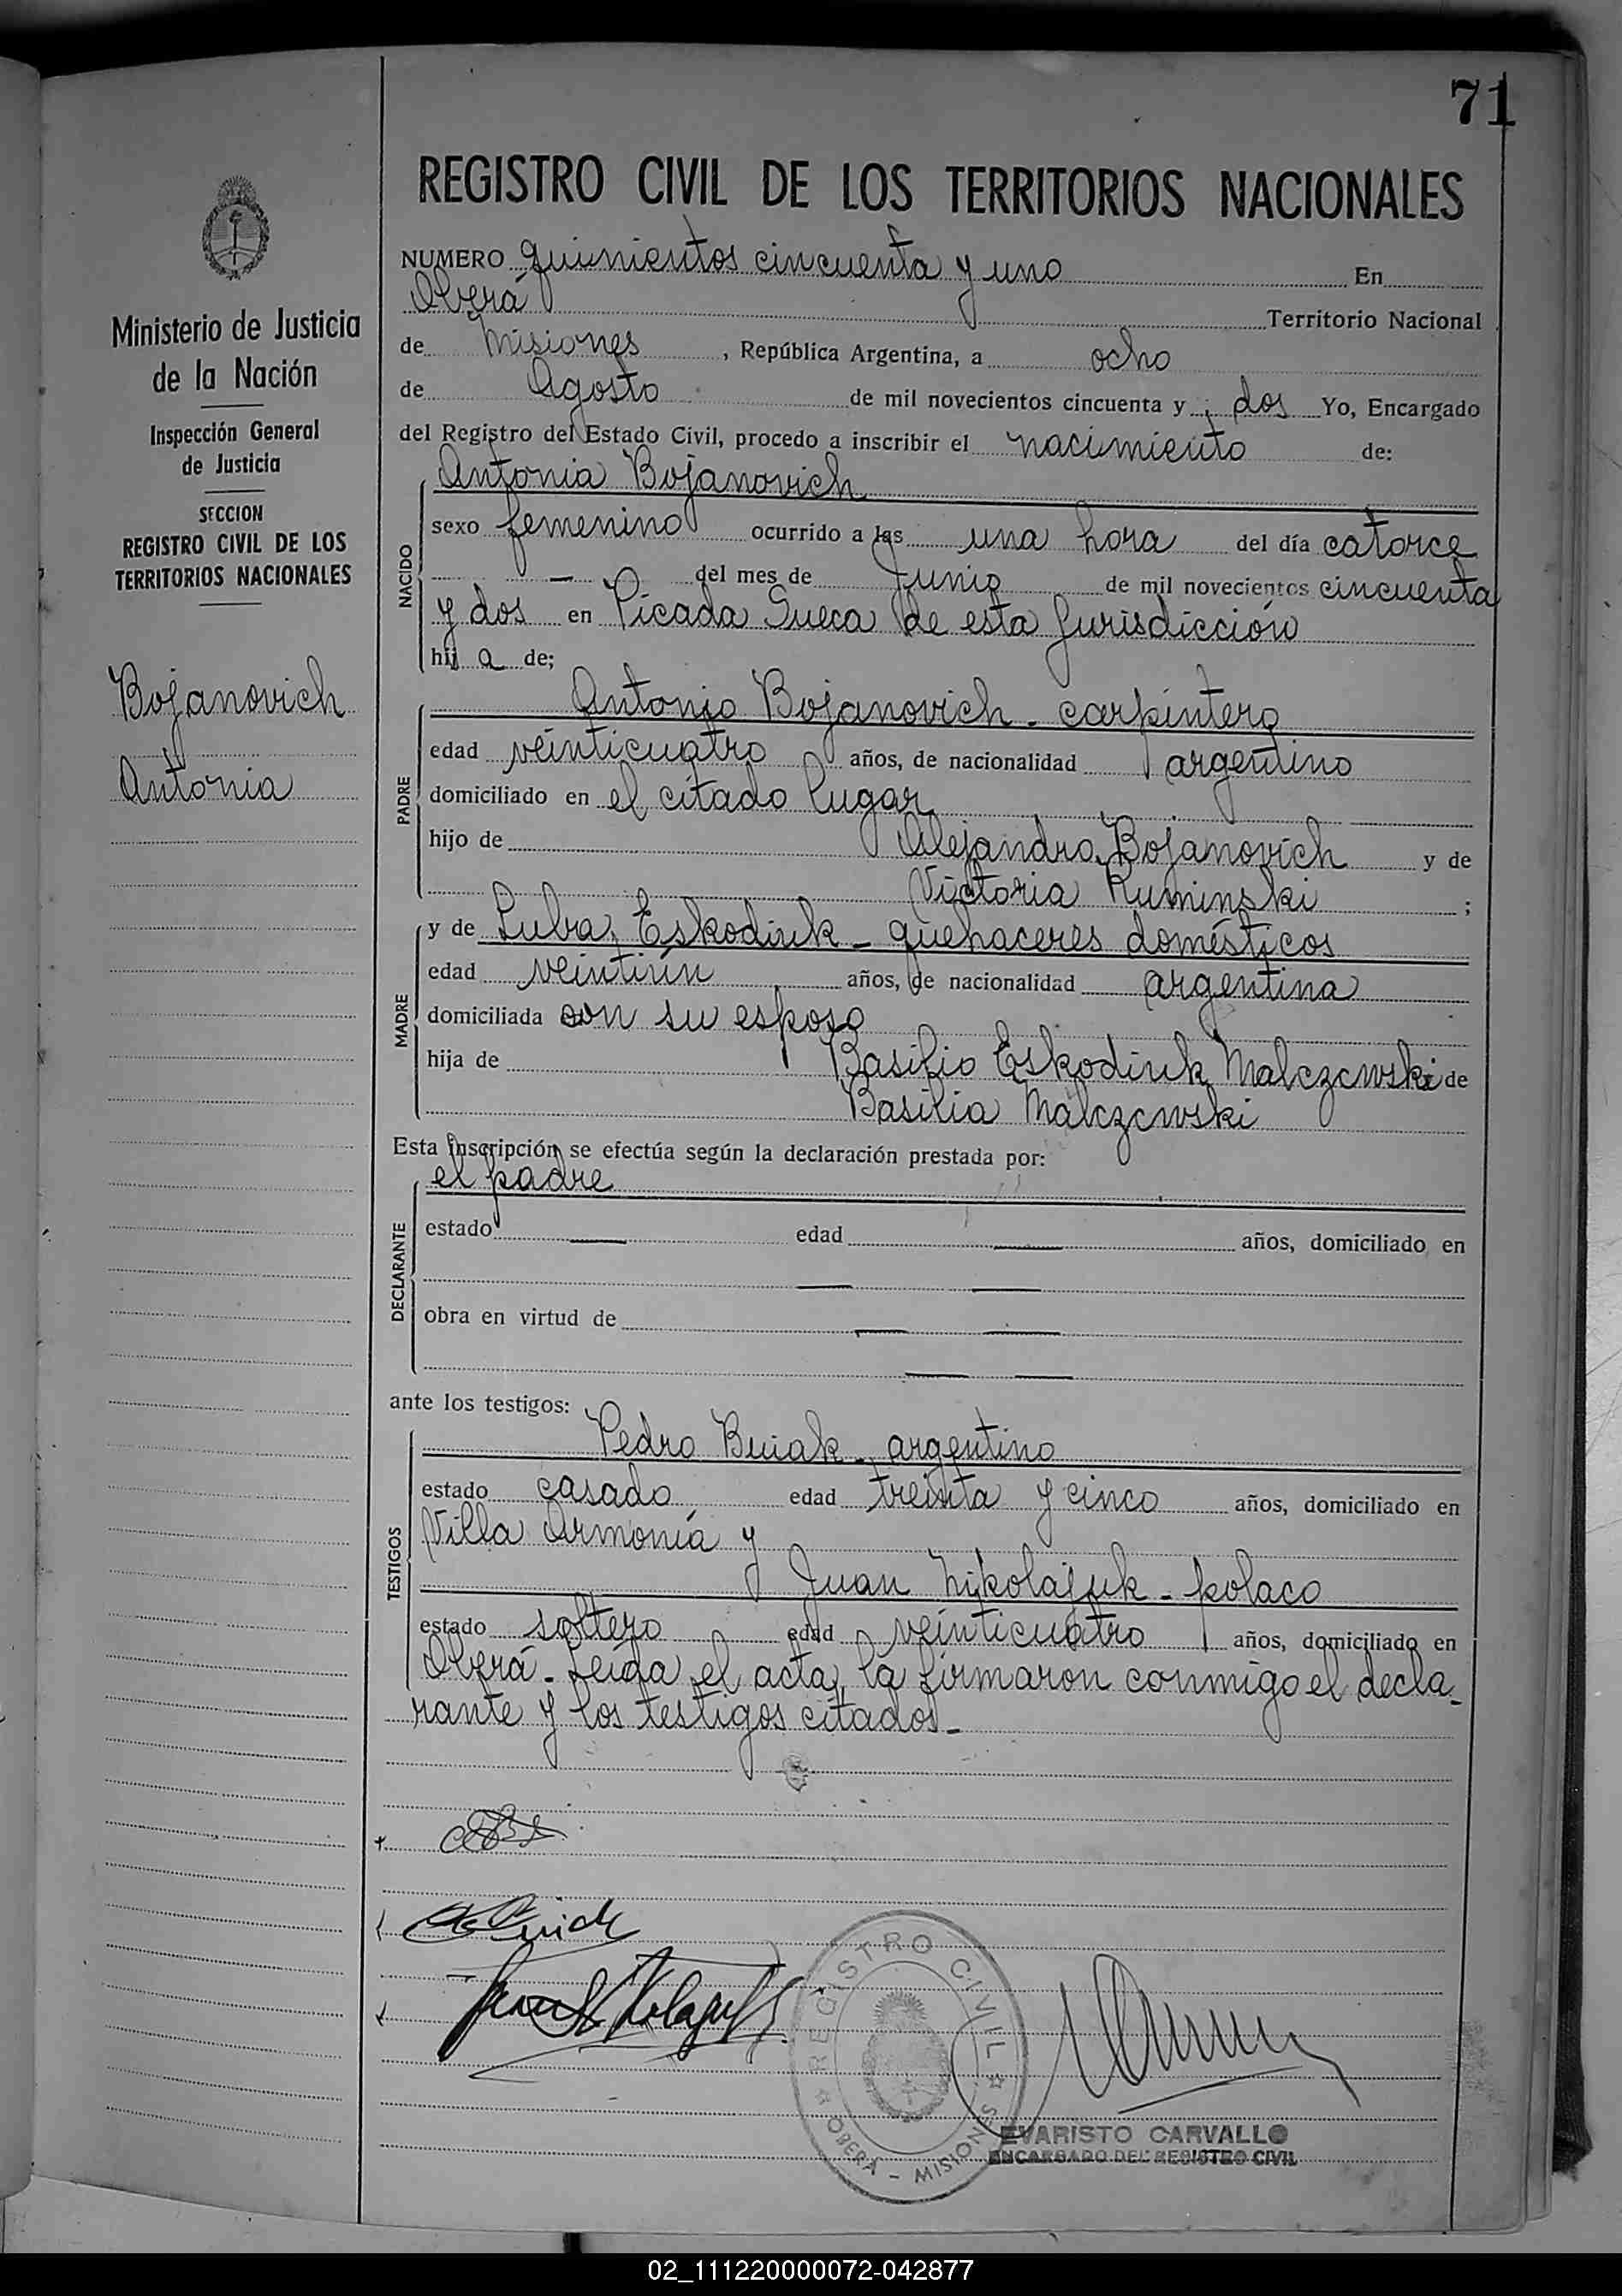 71
REGISTRO CIVIL DE LOS TERRITORIOS NACIONALES
Ministerio de Justicia
de la Nación
Inspección General
de Justicia
SECCION
REGISTRO CIVIL DE LOS
TERRITORIOS NACIONALES
Bojanovich
Antonia
NUMERO quinientos cincuenta y uno En
Oberá Territorio Nacional
de Misiones, República Argentina, a ocho
de Agosto de mil novecientos cincuenta y dos Yo, Encargado
del Registro del Estado Civil, procedo a inscribir el nacimiento de:
Antonia Bojanovich
NACIDO
sexo femenino ocurrido a las una hora del día catorce
— del mes de Junio de mil novecientos cincuenta
y dos en Picada Sueca de esta Jurisdicción
hij a de;
PADRE
Antonio Bojanovich - carpintero
edad veinticuatro años, de nacionalidad argentino
domiciliado en el citado lugar
hijo de Alejandro Bojanovich y de
Victoria Ruminski ;
MADRE
y de Luba Eskodiuk - quehaceres domésticos
edad veintiún años, de nacionalidad argentina
domiciliada con su esposo
hija de Basilio Eskodiuk Malczewski de
Basilia Malczewski
Esta inscripción se efectúa según la declaración prestada por:
el padre
DECLARANTE
estado — edad — años, domiciliado en
— —
obra en virtud de — —
— —
ante los testigos:
TESTIGOS
Pedro Buiak - argentino
estado casado edad treinta y cinco años, domiciliado en
Villa Armonía y
Juan Nikolajuk - polaco
estado soltero edad veinticuatro años, domiciliado en
Oberá - Leída el acta, la firmaron conmigo el decla-
rante y los testigos citados -
REGISTRO CIVIL
OBERÁ - MISIONES
EVARISTO CARVALLO
ENCARGADO DEL REGISTRO CIVIL
02_111220000072-042877